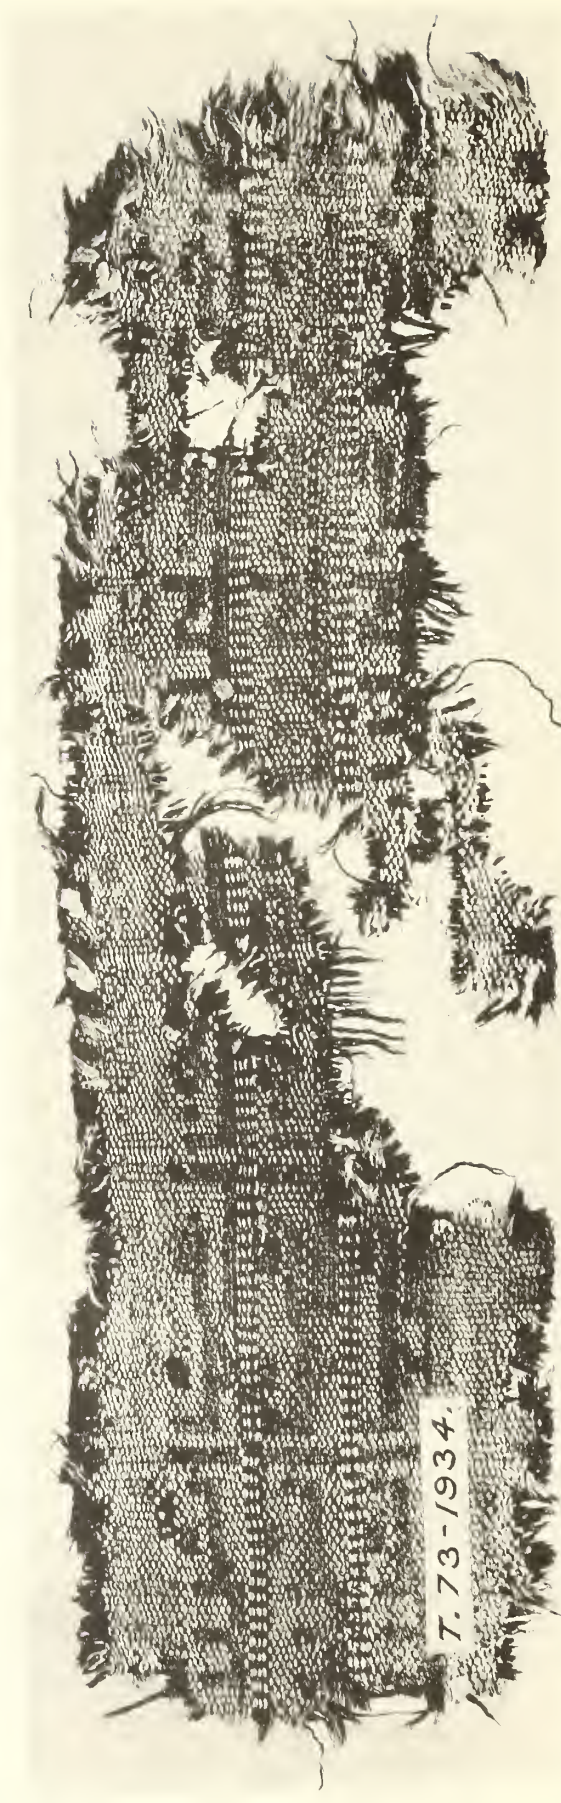 T. 73-1934.